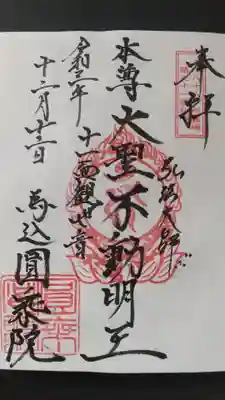 奉拝
弘法大師
本尊 大聖不動明王
十一面観世音
令和三年
十二月廿二日
馬込 圓乗院